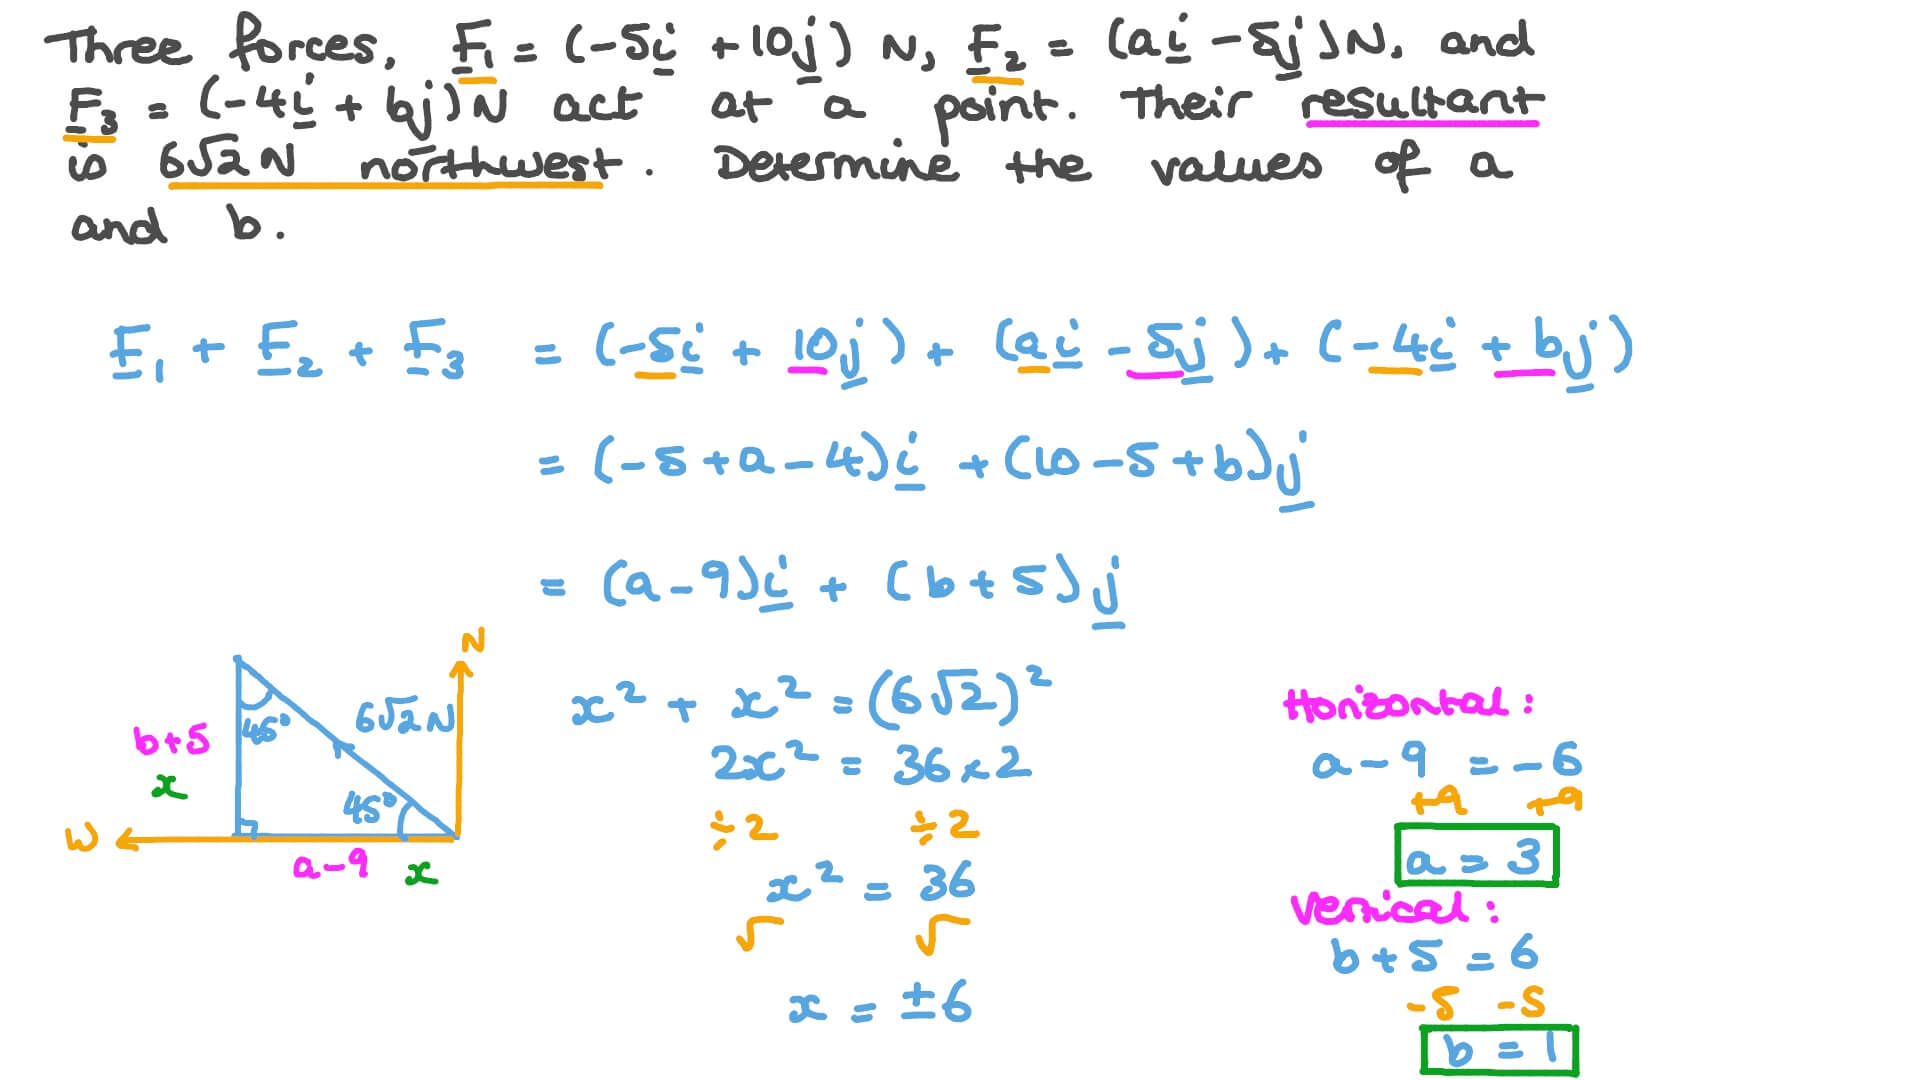 Three forces, F₁ = (-5i + 10j) N, F₂ = (ai - 5j)N, and
F₃ = (-4i + bj)N act at a point. Their resultant
is 6√2 N northwest. Determine the values of a
and b.
F₁ + F₂ + F₃ = (-5i + 10j) + (ai - 5j) + (-4i + bj)
= (-5 + a - 4)i + (10 - 5 + b)j
= (a - 9)i + (b + 5)j
N
W
b+5
x
45°
6√2 N
45°
a-9
x
x² + x² = (6√2)²
2x² = 36 × 2
÷2 ÷2
x² = 36
√ √
x = ±6
Horizontal:
a - 9 = -6
+9 +9
a = 3
Vertical:
b + 5 = 6
-5 -5
b = 1